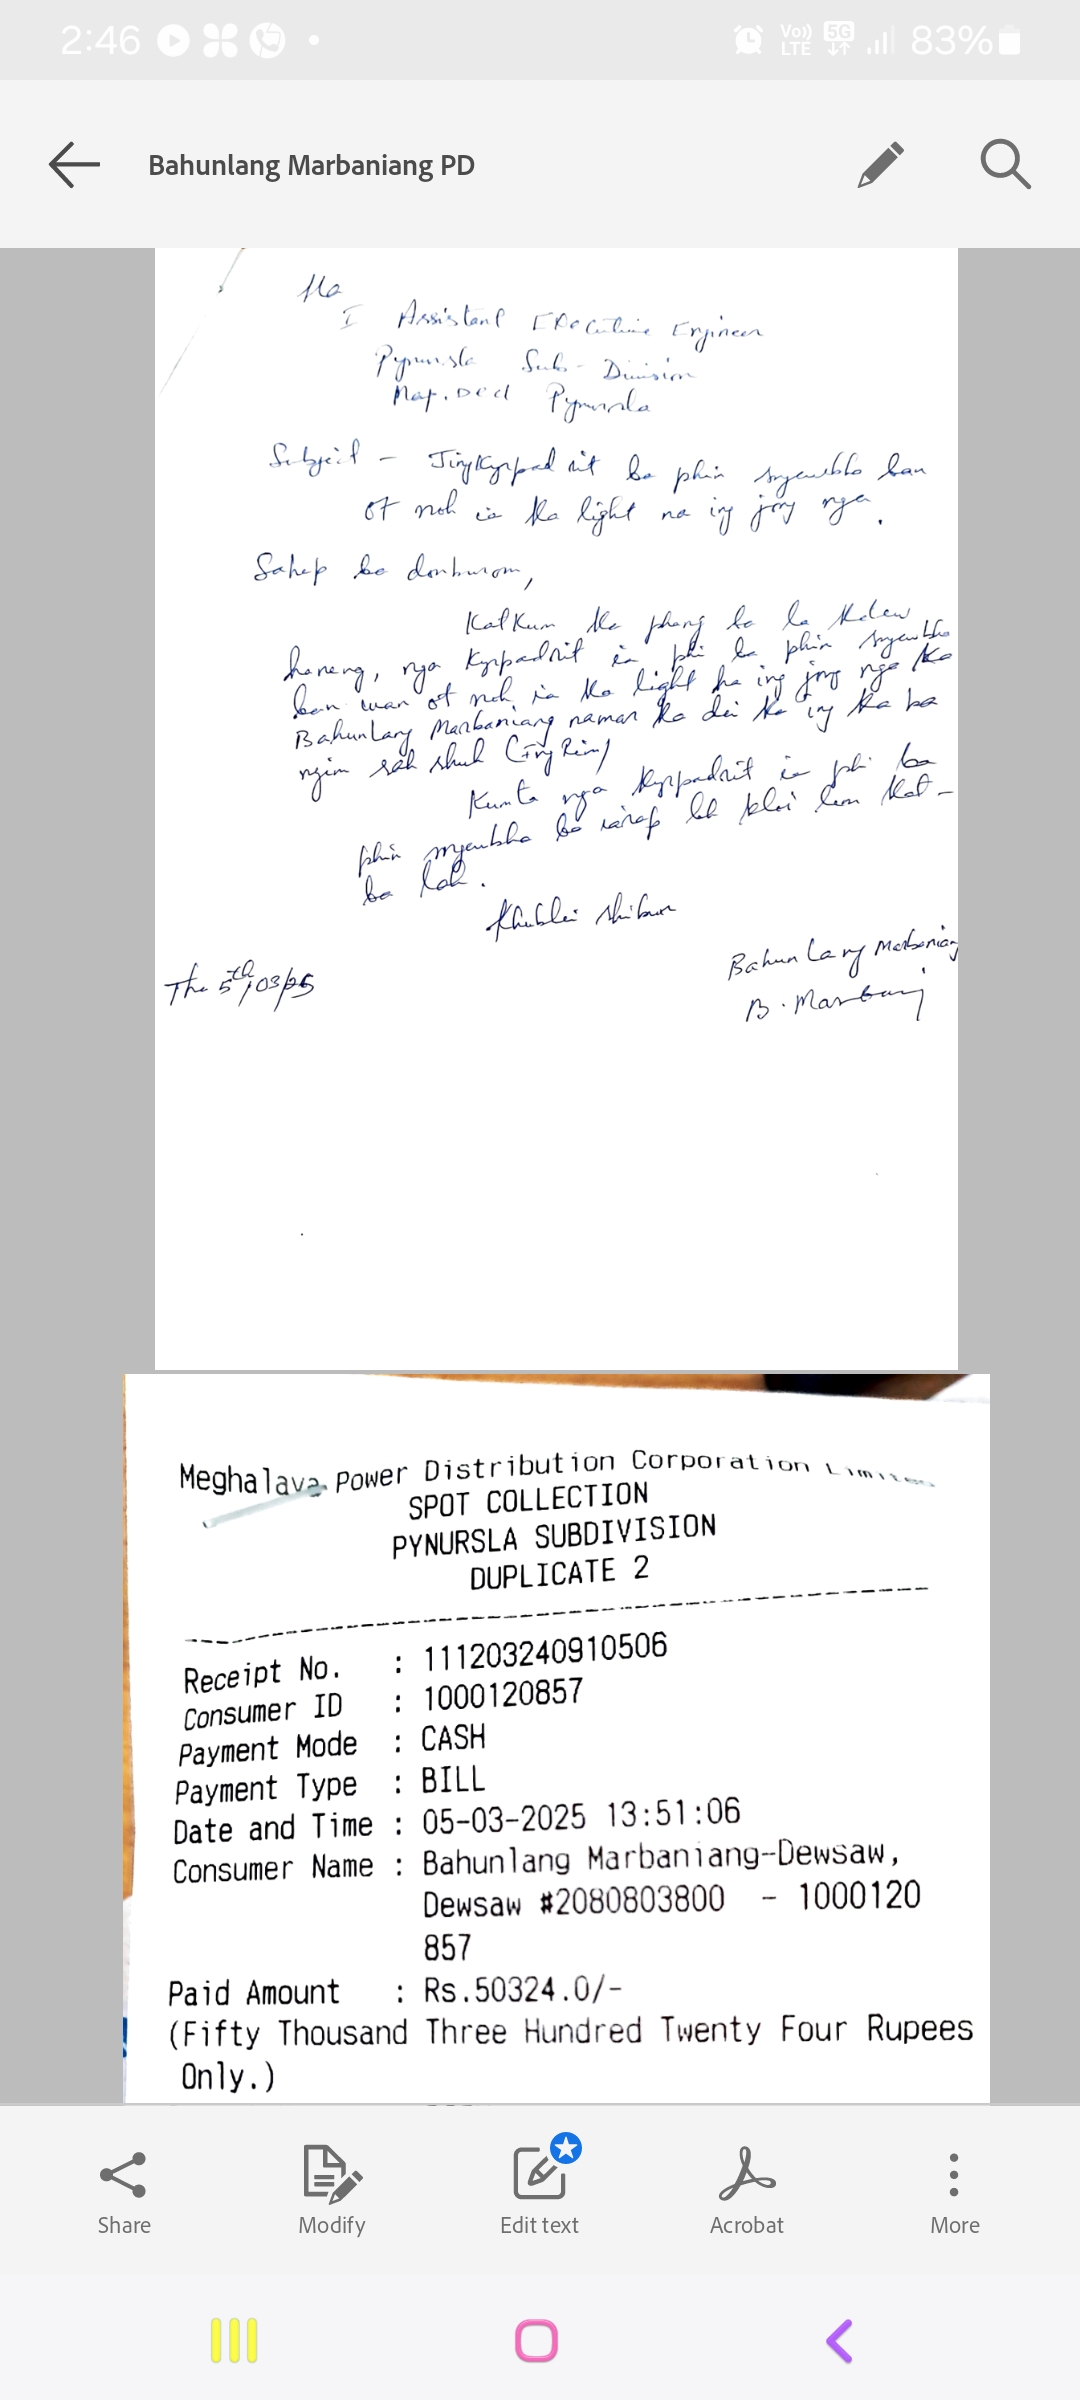 2:46
Vo)) LTE 5G 83%
Bahunlang Marbaniang PD
Ha
I Assistant Executive Engineer
Pynursla Sub-Division
Pynursla
Subject - Jingkyrpad rit ba phin sngewbha ban
ot noh ia ka light na ing jong nga.
Sahep ba donburom,
Katkum ka phang ba la kdew
haneng, nga kyrpadrit ia phi ba phin sngewbha
ban wan ot noh ia ka light ha ing jong nga ka
Bahunlang Marbaniang naman ka dei ka ing ka ba
ngim sah shuh (Ing Rim)
Kumta nga kyrpadrit ia phi ba
phin sngewbha ba iarap lah kloi lem kat-
ba lah.
Khublei shibun
The 5th/03/25
Bahunlang Marbaniang
B. Marbaniang
Meghalaya Power Distribution Corporation Limited
SPOT COLLECTION
PYNURSLA SUBDIVISION
DUPLICATE 2
Receipt No. : 111203240910506
Consumer ID : 1000120857
Payment Mode : CASH
Payment Type : BILL
Date and Time : 05-03-2025 13:51:06
Consumer Name : Bahunlang Marbaniang-Dewsaw,
Dewsaw #2080803800 - 1000120
857
Paid Amount : Rs.50324.0/-
(Fifty Thousand Three Hundred Twenty Four Rupees
Only.)
Share
Modify
Edit text
Acrobat
More